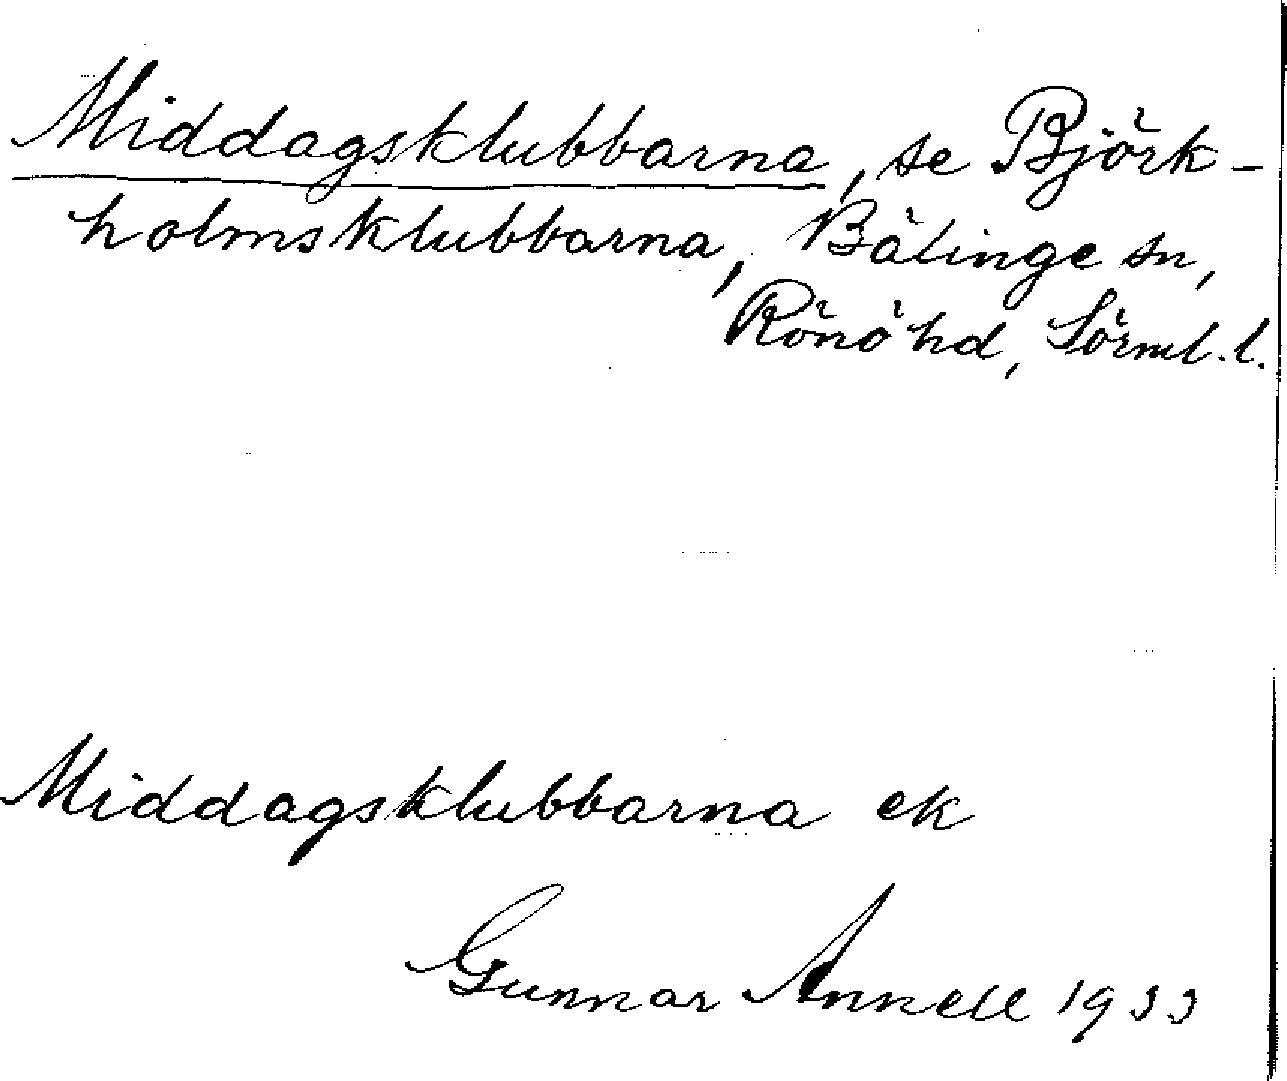 Middagsklubbarna, se Björk-
holmsklubbarna, Bälinge sn,
Rönö hd, Sörml. l.
Middagsklubbarna ek
Gunnar Annell 1933